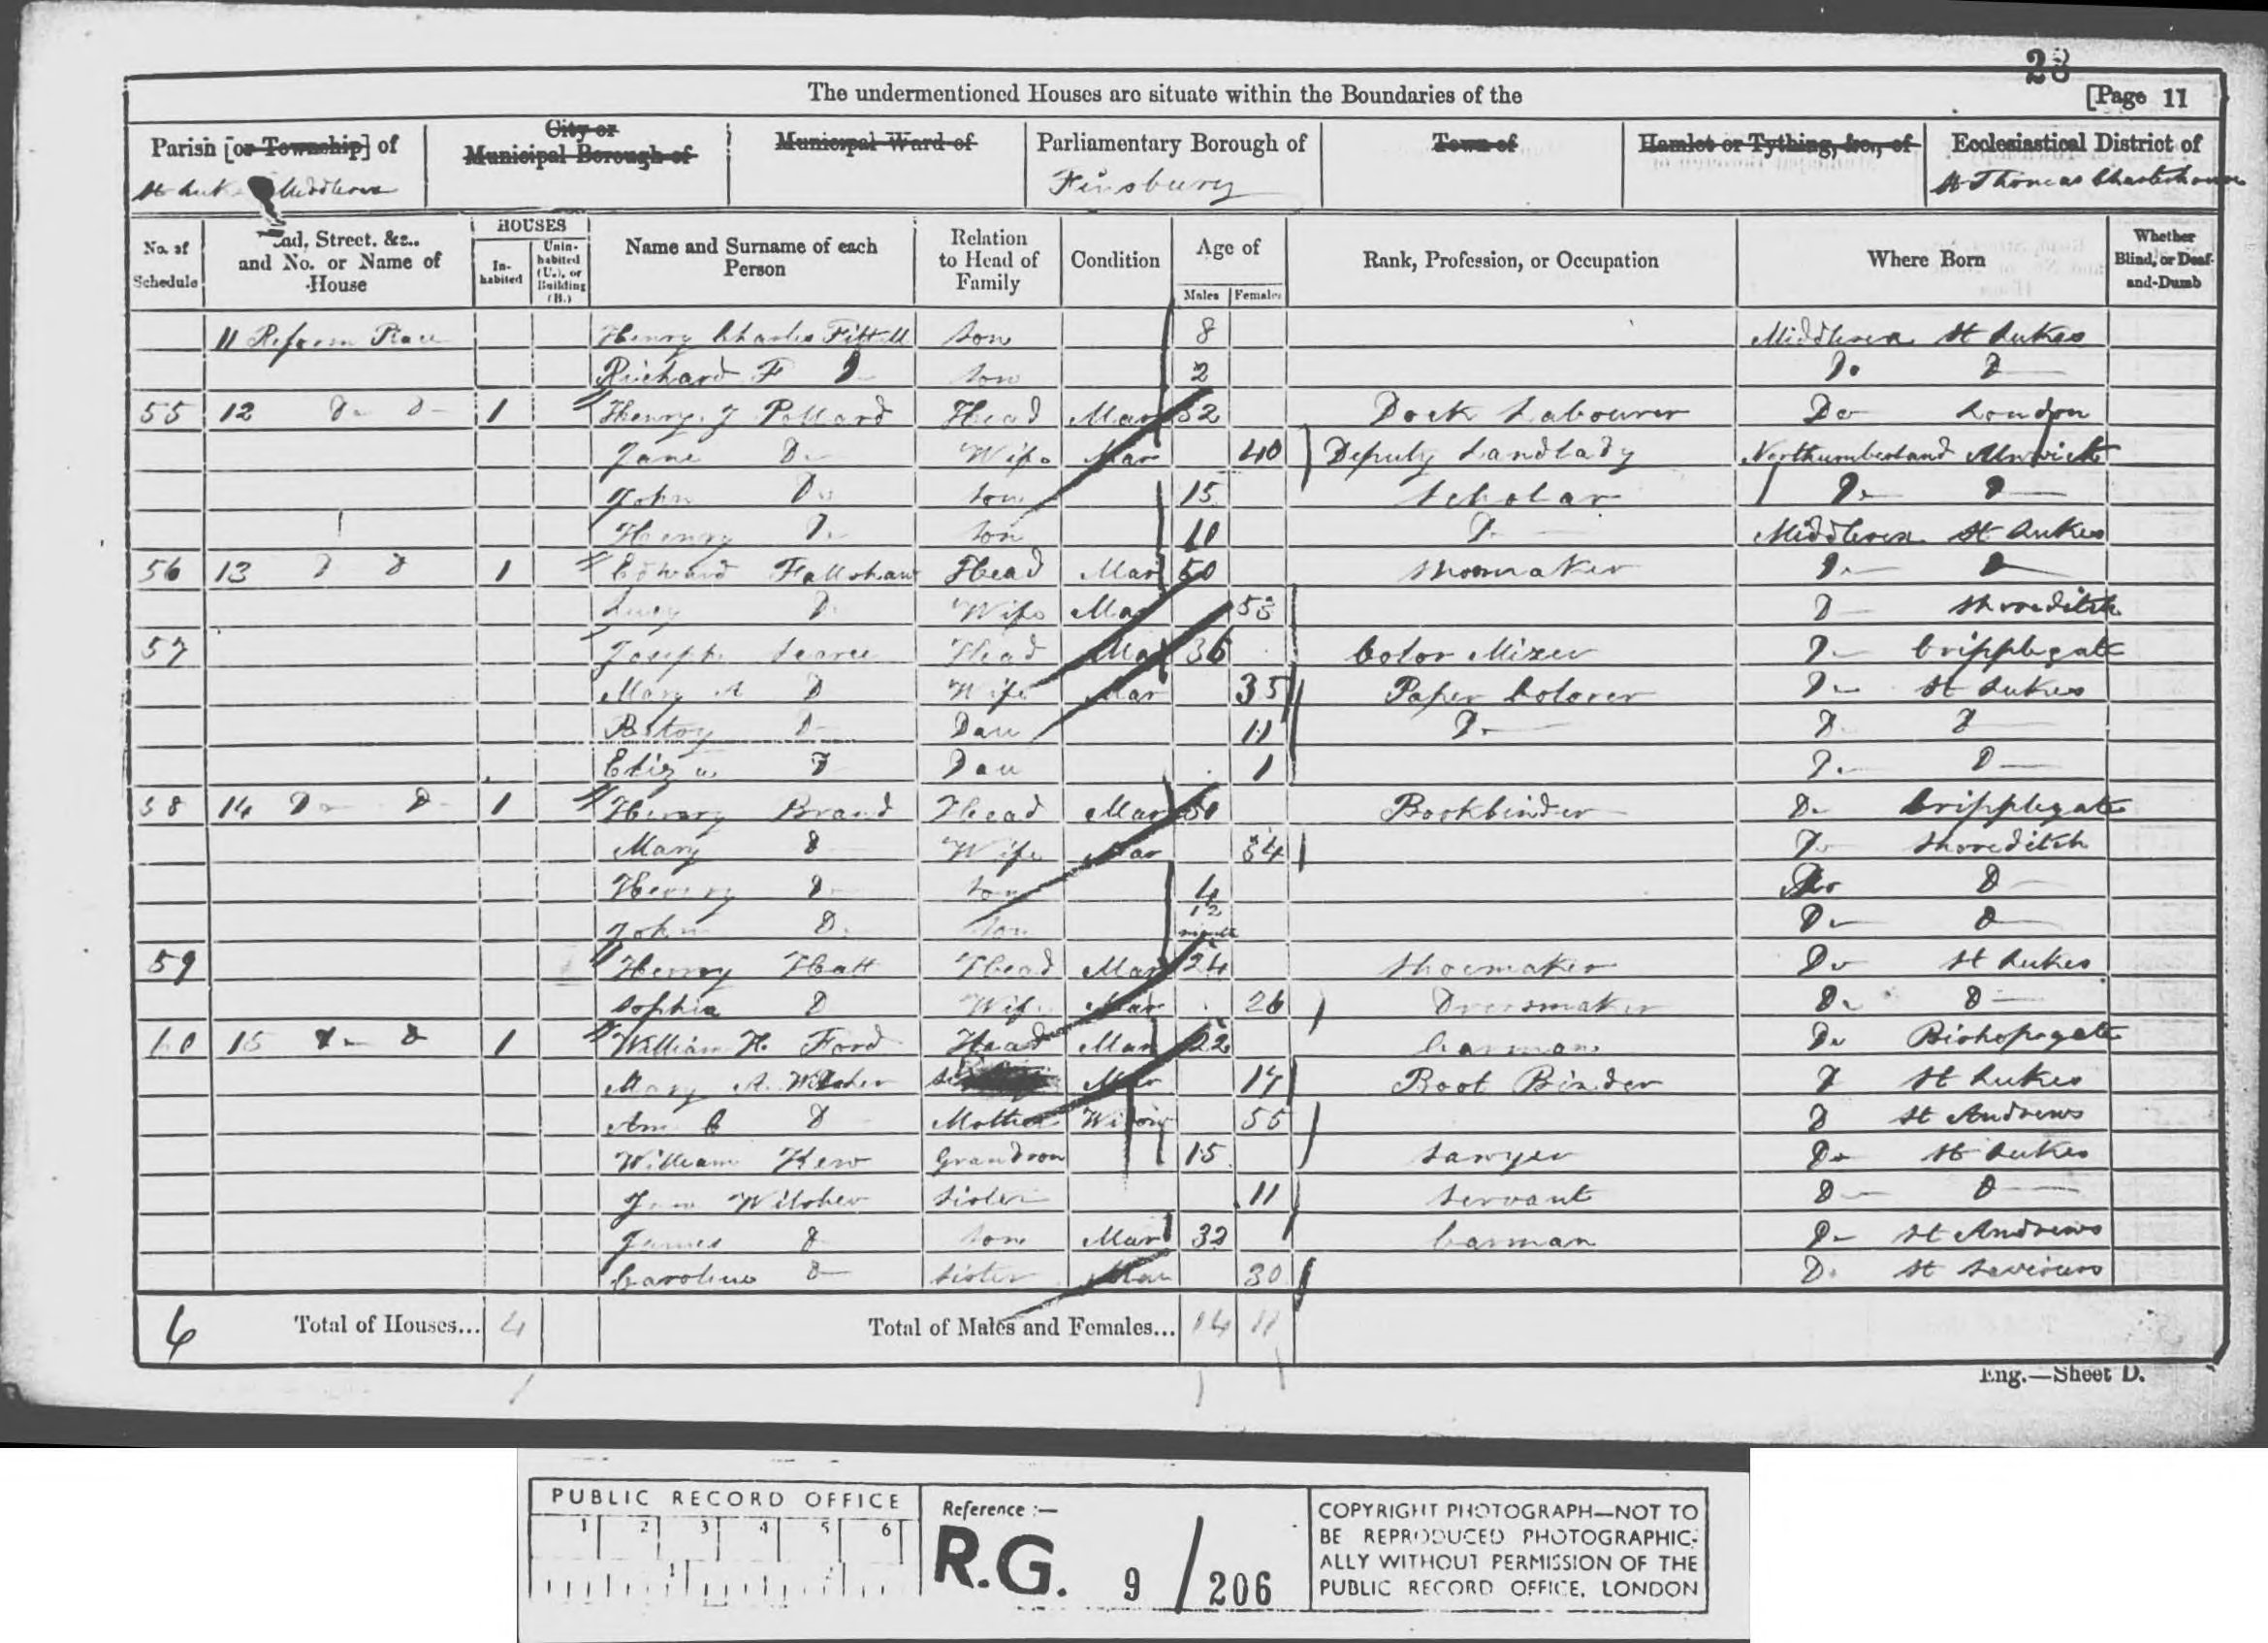 28
The undermentioned Houses are situate within the Boundaries of the
[Page 11
Parish [or Township] of
City or Municipal Borough of
Municipal Ward of
Parliamentary Borough of
Town of
Hamlet or Tything, &c., of
Ecclesiastical District of
St Luke Middlesex
Finsbury
St Thomas Charterhouse
No. of Schedule
ad, Street, &c., and No. or Name of House
HOUSES
In-habited
Unin-habited (U.), or Building (B.)
Name and Surname of each Person
Relation to Head of Family
Condition
Age of
Males
Females
Rank, Profession, or Occupation
Where Born
Whether Blind, or Deaf-and-Dumb
11 Reform Place Henry Charles Son 8 Middlesex St Lukes
Richard F D Son 2 Do D
55 12 Do D 1 Henry J Pollard Head Mar 52 Dock Labourer Do London
Jane Do Wife Mar 40 Deputy Landlady Northumberland Alnwick
John Do Son 15 Scholar Do D
Henry Do Son 10 Do Middlesex St Lukes
56 13 D D 1 Edward Fallshaw Head Mar 50 Shoemaker Do D
Lucy D Wife Mar 53 D Shoreditch
57 Joseph Searee Head Mar 36 Color Mixer Do Cripplegate
Mary A D Wife Mar 35 Paper Colorer Do St Lukes
Betsy D Dau 11 Do D D
Eliza D Dau 1 Do D
58 14 Do D 1 Henry Brand Head Mar Bookbinder Do Cripplegate
Mary D Wife Mar 34 Do Shoreditch
Henry D Son 4 Do D
John D Son Do D
59 Henry Hatt Head Mar 24 Shoemaker Do St Lukes
Sophia D Wife Mar 26 Dressmaker Do D
60 15 Do D 1 William H. Ford Head Mar 22 Carman Do Bishopsgate
Mary A. Wilsher Mar 17 Boot Binder D St Lukes
Ann C D Mother Widow 55 D St Andrews
William Kew Grandson 15 Sawyer Do St Lukes
Jane Wilsher Sister 11 Servant D D
James D Son Mar 32 Carman Do St Andrews
Caroline D Sister Mar 30 Do St Saviours
4
Total of Houses... 4
Total of Males and Females... 14 11
Eng.—Sheet D.
PUBLIC RECORD OFFICE
1 2 3 4 5 6
Reference :—
R.G. 9 / 206
COPYRIGHT PHOTOGRAPH—NOT TO
BE REPRODUCED PHOTOGRAPHIC-
ALLY WITHOUT PERMISSION OF THE
PUBLIC RECORD OFFICE, LONDON